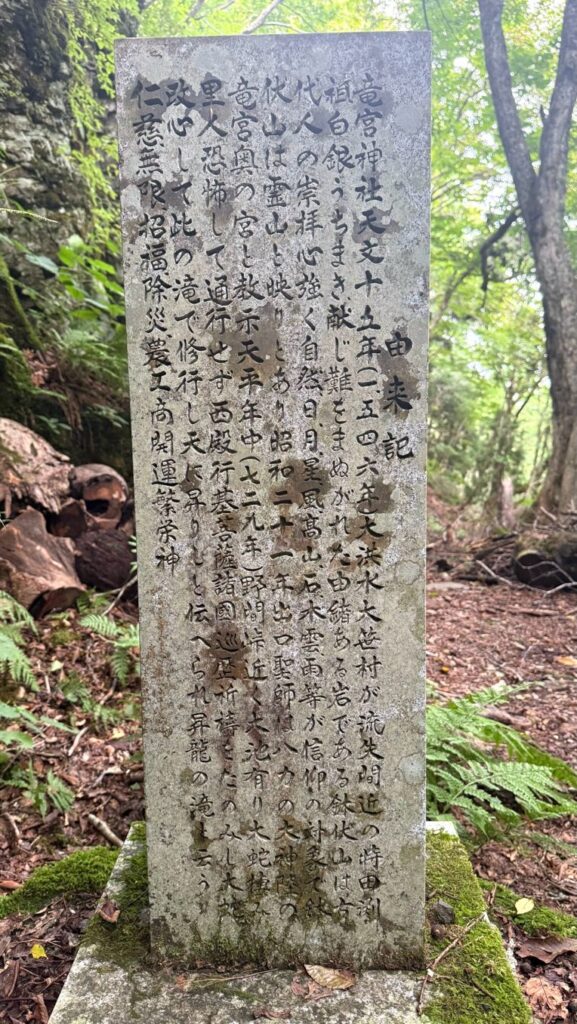 由来記
竜宮神社天文十五年(一五四六年)大洪水大笹村が流失間近の時田渕
祖白銀うちまき献じ難をまぬがれた由緒ある岩である鉢伏山は古
代人の崇拝心強く自然日月星風高山石木雲雨等が信仰の対象で鉢
伏山は霊山と映りとあり昭和二十一年出口聖師は八カの大神怪の
竜宮奥の宮と教示天平年中(七二九年)野間峠近く大池有り大蛇棲み
里人恐怖して通行せず西殿行基菩薩諸國巡坐祈祷をたのみし大蛇
改心して此の滝で修行し天に昇りしと伝へられ昇龍の滝と云う
仁慈無限招福除災農工商開運繁栄神